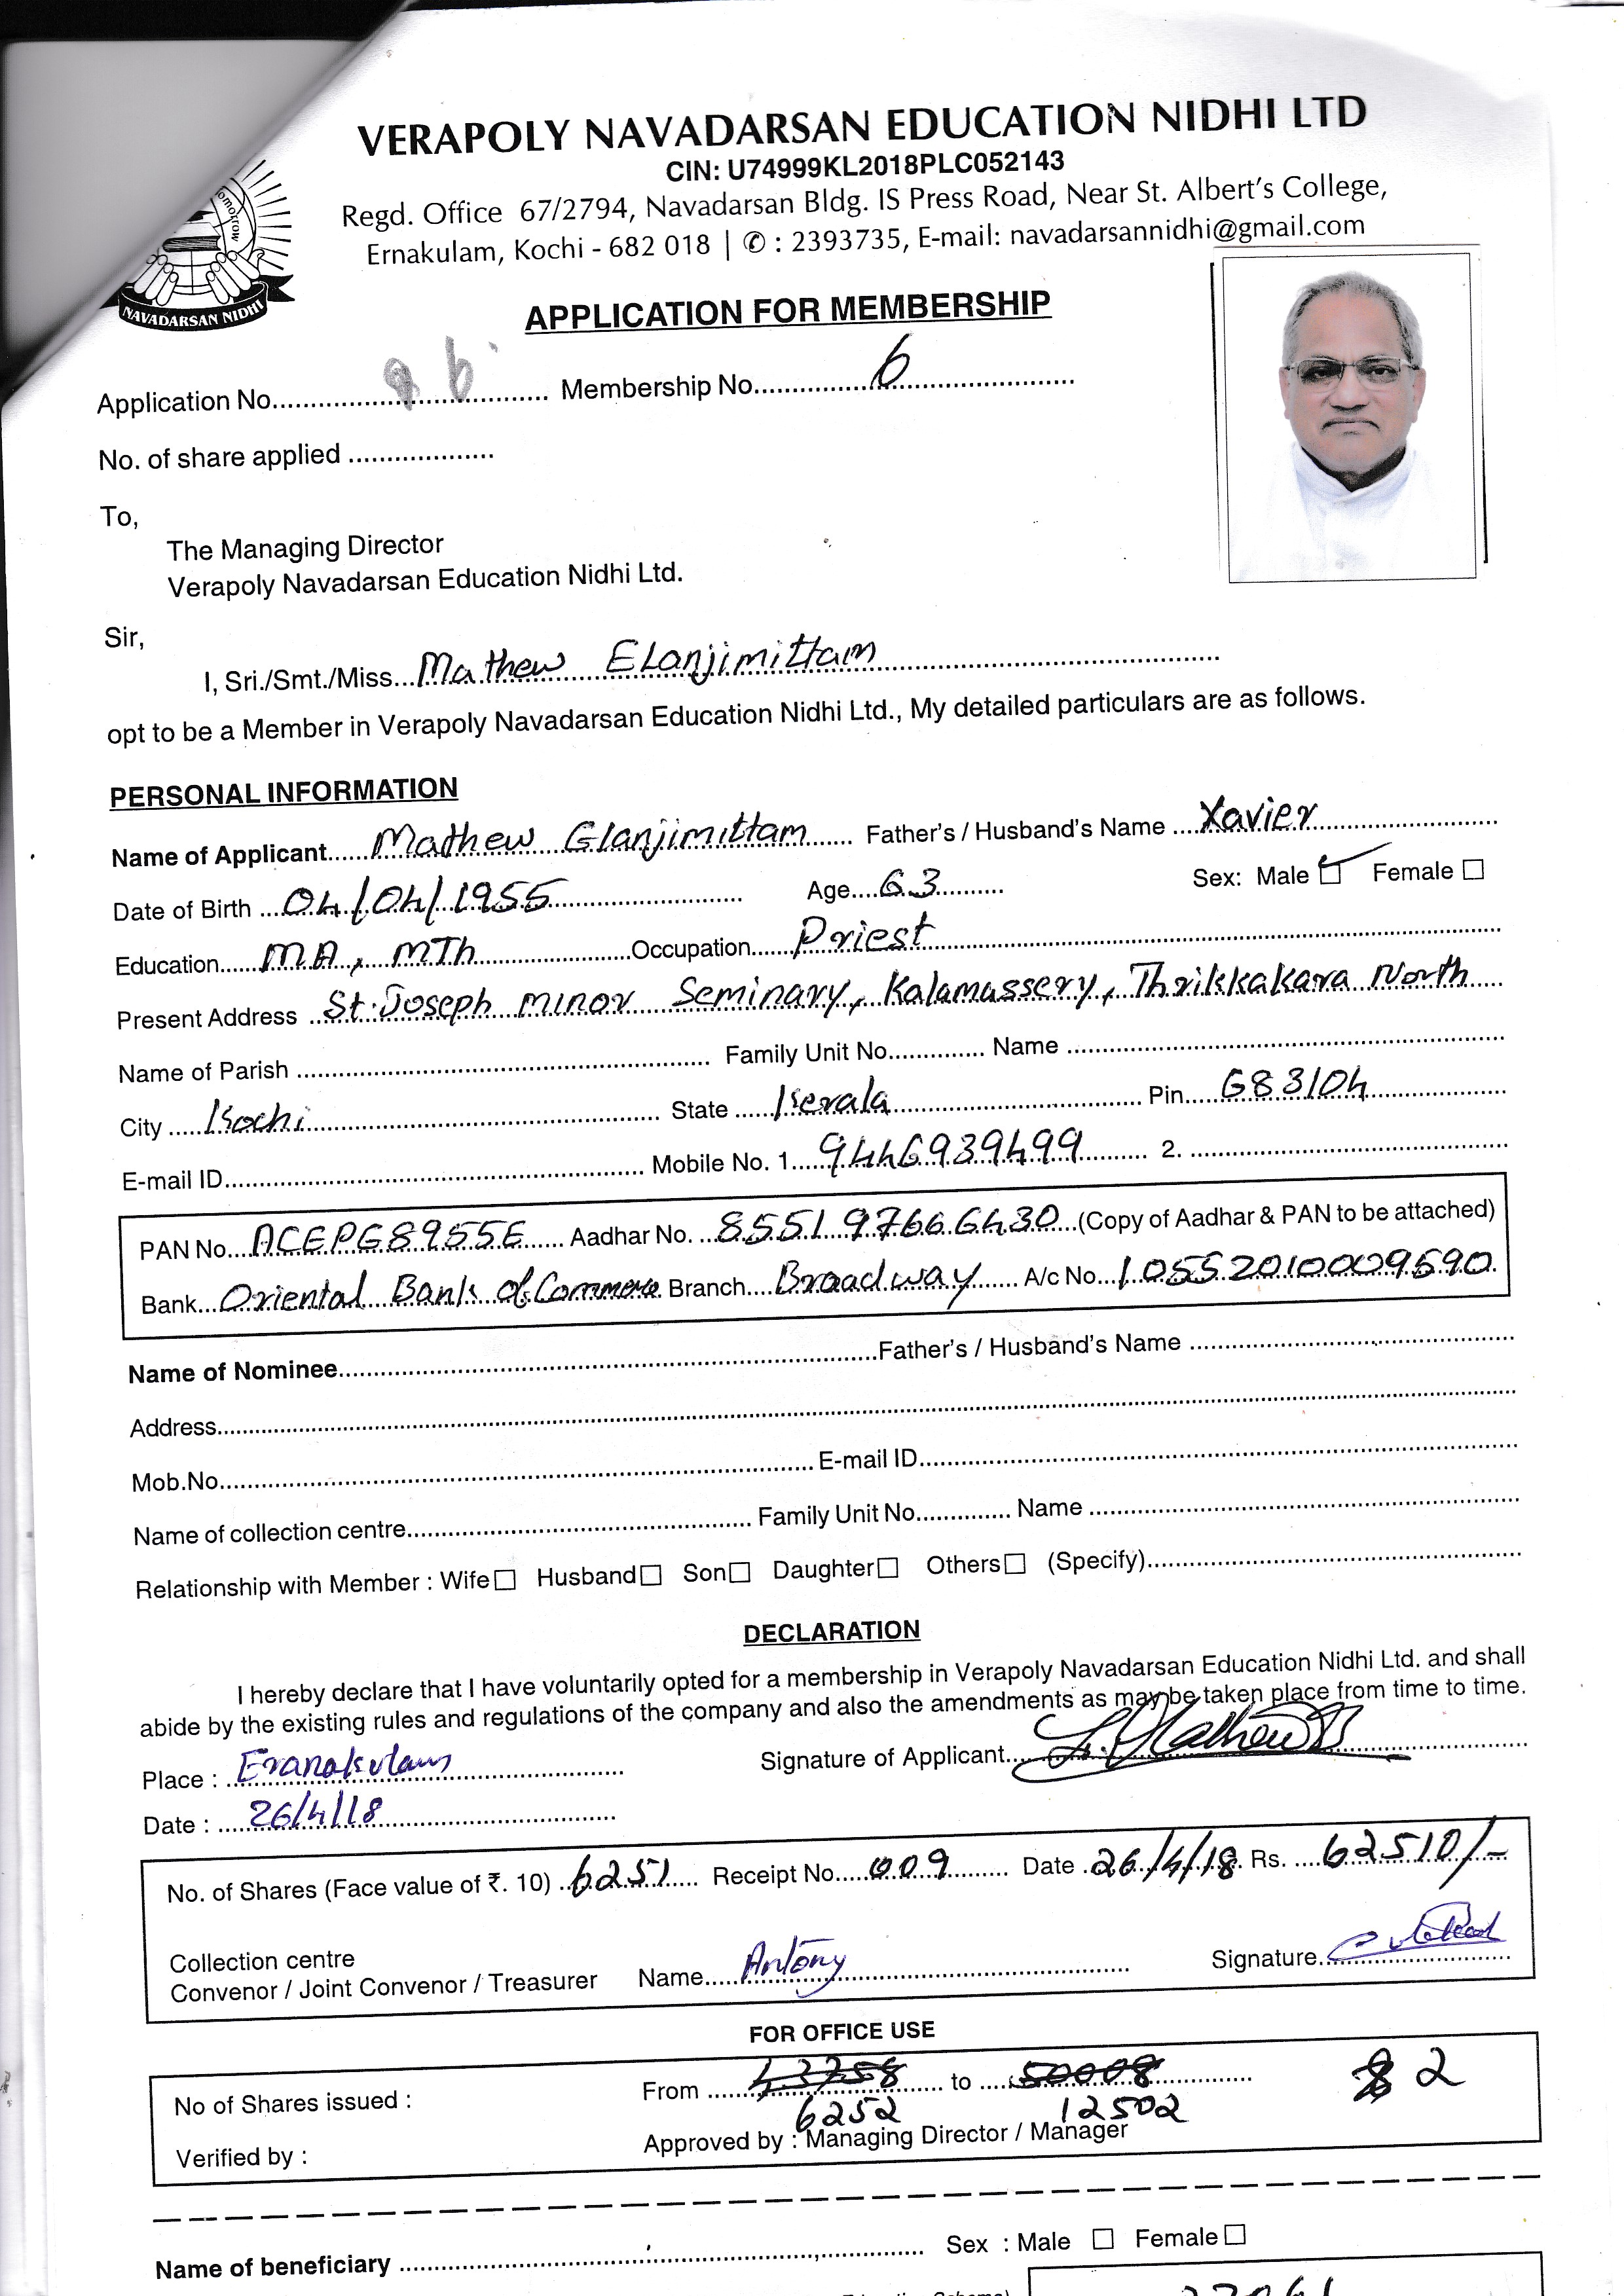 VERAPOLY NAVADARSAN EDUCATION NIDHI LTD
CIN: U74999KL2018PLC052143
Regd. Office 67/2794, Navadarsan Bldg. IS Press Road, Near St. Albert's College,
Ernakulam, Kochi - 682 018 | ✆ : 2393735, E-mail: navadarsannidhi@gmail.com
NAVADARSAN NIDHI
APPLICATION FOR MEMBERSHIP
Application No. 6 Membership No. 6
No. of share applied
To,
The Managing Director
Verapoly Navadarsan Education Nidhi Ltd.
Sir,
I, Sri./Smt./Miss. Mathew Elanjimittam
opt to be a Member in Verapoly Navadarsan Education Nidhi Ltd., My detailed particulars are as follows.
PERSONAL INFORMATION
Name of Applicant Mathew Elanjimittam Father's / Husband's Name Xavier
Date of Birth 04/04/1955 Age 63 Sex: Male ☑ Female ☐
Education MA, MTh Occupation Priest
Present Address St. Joseph minor Seminary, Kalamassery, Thrikkakara North
Name of Parish Family Unit No. Name
City Kochi State Kerala Pin 683104
E-mail ID Mobile No. 1. 9446939499 2.
PAN No. ACEPG8955E Aadhar No. 855197666430 (Copy of Aadhar & PAN to be attached)
Bank Oriental Bank of Commerce Branch Broadway A/c No. 10552010009590
Name of Nominee Father's / Husband's Name
Address
Mob.No. E-mail ID
Name of collection centre Family Unit No. Name
Relationship with Member : Wife ☐ Husband ☐ Son ☐ Daughter ☐ Others ☐ (Specify)
DECLARATION
I hereby declare that I have voluntarily opted for a membership in Verapoly Navadarsan Education Nidhi Ltd. and shall
abide by the existing rules and regulations of the company and also the amendments as may be taken place from time to time.
Place : Eranakulam Signature of Applicant
Date : 26/4/18
No. of Shares (Face value of ₹. 10) 6251 Receipt No. 009 Date 26/4/18 Rs. 62510/-
Collection centre
Convenor / Joint Convenor / Treasurer Name Antony Signature
FOR OFFICE USE
No of Shares issued : From 43758 to 50008 2
6252 12502
Verified by : Approved by : Managing Director / Manager
Name of beneficiary Sex : Male ☐ Female ☐